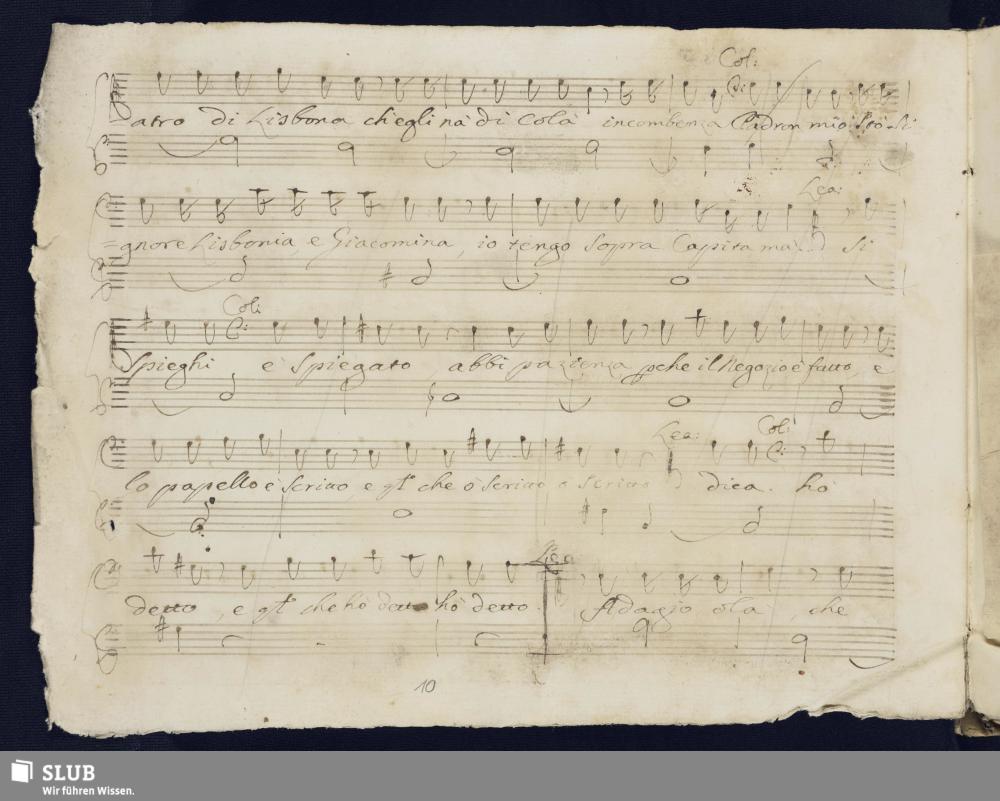 Col:
atro di Lisbona ch'egli nà di Colà incombenza Padron mio Si
Lea:
=gnore Lisbonia, e Giacomina, io tengo Sopra Capita ma Si
Col:
Spieghi è Spiegato, abbi pazienza pche il Negozio è fatto, e
Lea: Col:
lo papello è Scritto, e qto che ò Scritto o Scritto dica. hò
Lea
detto, e qto che hò detto hò detto. Adagio olà, che
10
SLUB
Wir führen Wissen.